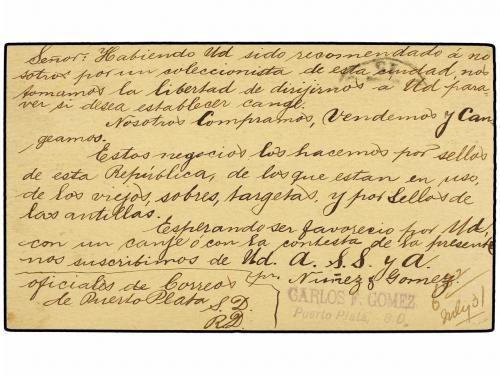 Señor: Habiendo Ud sido recomendado á no
sotros por un soleccionista de esta ciudad, nos
tomamos la libertad de dirijirnos a Ud para
ver si desea establecer cange.
Nosotros Compramos, Vendemos y Can
geamos.
Estos negocios los hacemos por sellos
de esta Republica, de los que estan en uso,
de los viejos, sobres, targetas, y por Sellos de
las antillas.
Esperando ser favorecio por Ud,
con un canje ó con la contesta de la presente
nos suscribimos de Ud. A. S. S. y A.
oficiales de Correos
de Puerto Plata
S. D.
R.D.
pr. Nuñez & Gomez
CARLOS F. GOMEZ
Puerto Plata, S.D.
July 31